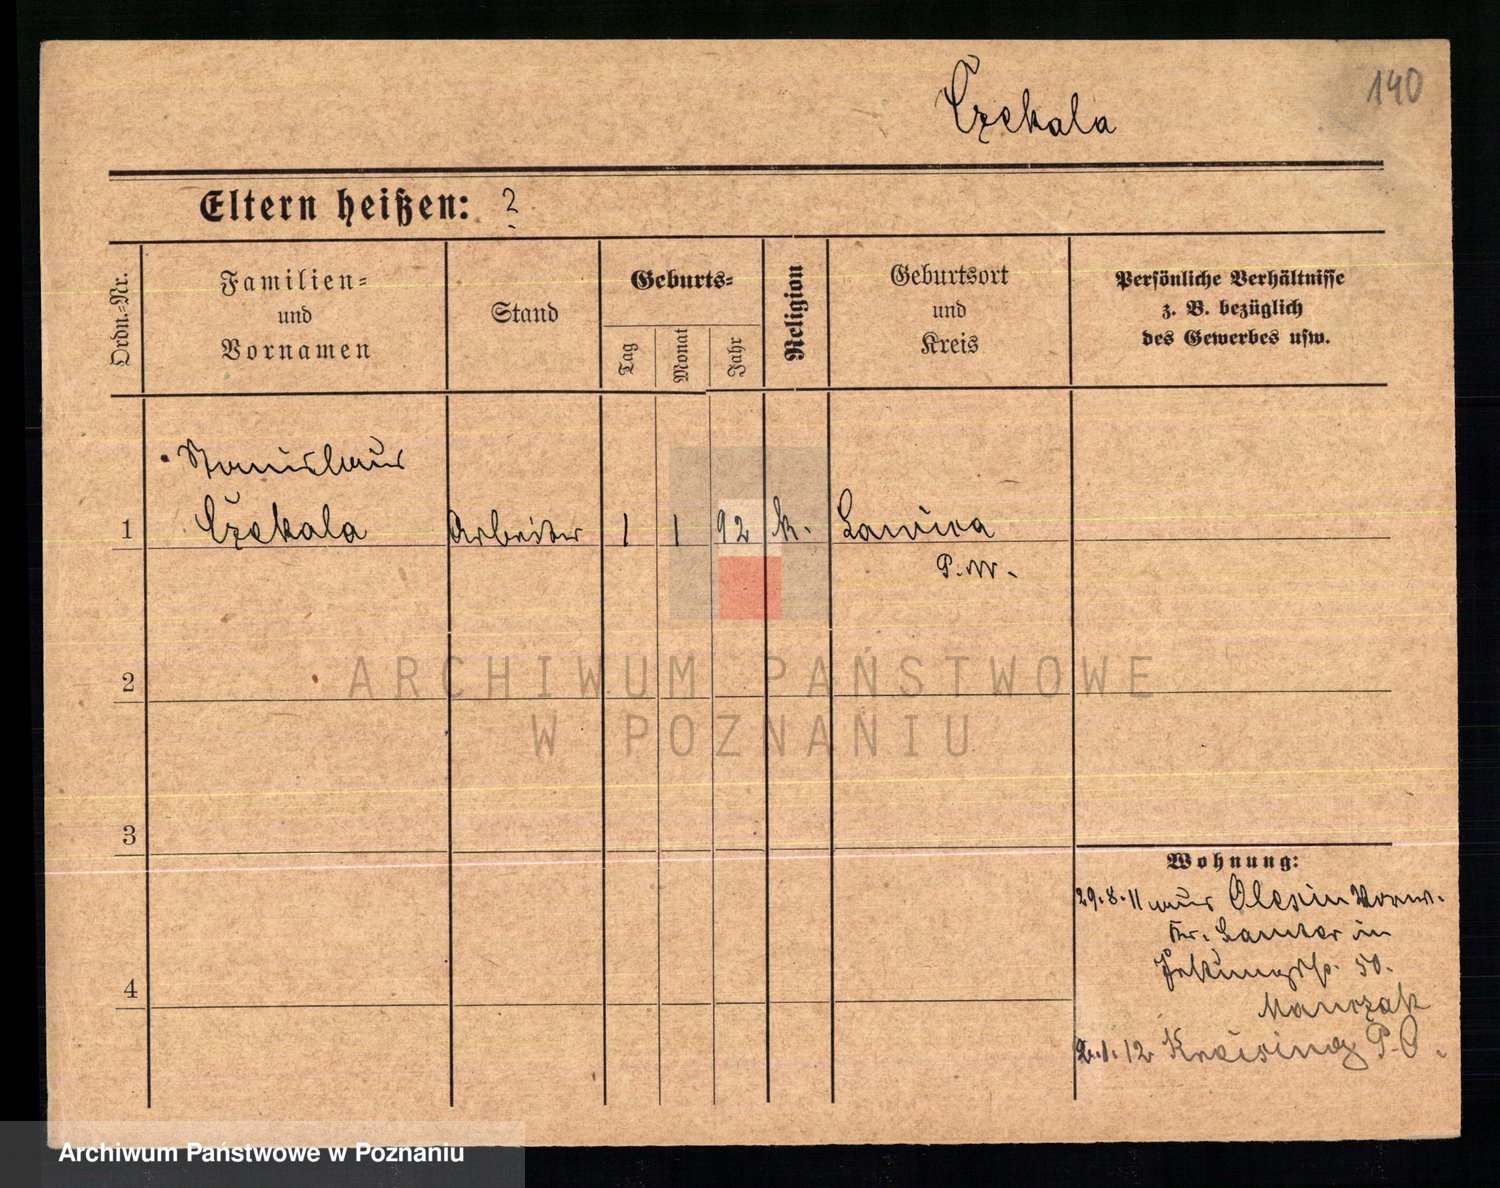 140
Czekala
Eltern heißen: ?
Ordn.=Nr.
Familien=
und
Vornamen
Stand
Geburts=
Tag
Monat
Jahr
Religion
Geburtsort
und
Kreis
Persönliche Verhältnisse
z. B. bezüglich
des Gewerbes usw.
Stanislaus
1 Czekala Arbeiter 1 1 92 k. Lawica
P. W.
2
3
4
Wohnung:
29.8.11 aus Olesin Vorw.
Kr. Samter in
50.
Manczak
2.1.12 Kreising P. O.
ARCHIWUM PAŃSTWOWE
W POZNANIU
Archiwum Państwowe w Poznaniu